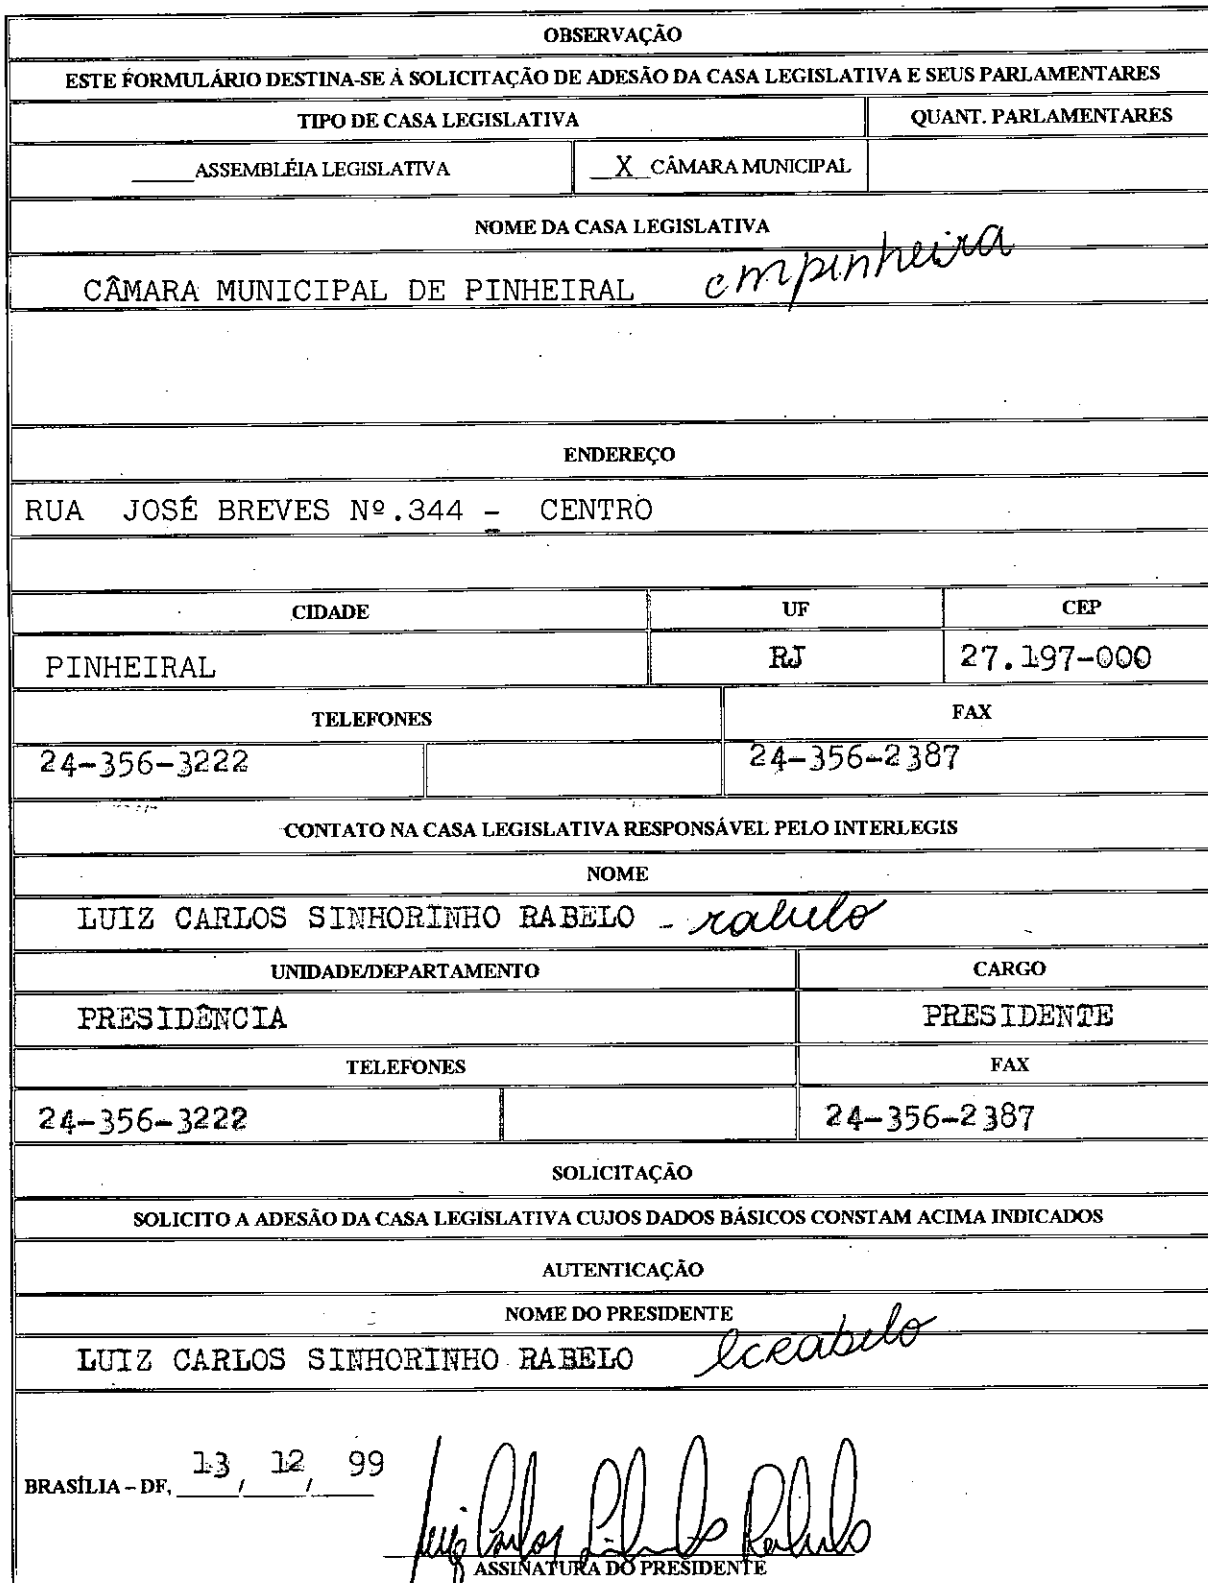 OBSERVAÇÃO
ESTE FORMULÁRIO DESTINA-SE À SOLICITAÇÃO DE ADESÃO DA CASA LEGISLATIVA E SEUS PARLAMENTARES
TIPO DE CASA LEGISLATIVA QUANT. PARLAMENTARES
_____ASSEMBLÉIA LEGISLATIVA __X_ CÂMARA MUNICIPAL
NOME DA CASA LEGISLATIVA
CÂMARA MUNICIPAL DE PINHEIRAL cmpinheira
ENDEREÇO
RUA JOSÉ BREVES Nº.344 - CENTRO
CIDADE UF CEP
PINHEIRAL RJ 27.197-000
TELEFONES FAX
24-356-3222 24-356-2387
CONTATO NA CASA LEGISLATIVA RESPONSÁVEL PELO INTERLEGIS
NOME
LUIZ CARLOS SINHORINHO RABELO - rabelo
UNIDADE/DEPARTAMENTO CARGO
PRESIDÊNCIA PRESIDENTE
TELEFONES FAX
24-356-3222 24-356-2387
SOLICITAÇÃO
SOLICITO A ADESÃO DA CASA LEGISLATIVA CUJOS DADOS BÁSICOS CONSTAM ACIMA INDICADOS
AUTENTICAÇÃO
NOME DO PRESIDENTE
LUIZ CARLOS SINHORINHO RABELO lcrabelo
BRASÍLIA – DF, 13 / 12 / 99
Luiz Carlos Sinhorinho Rabelo
ASSINATURA DO PRESIDENTE